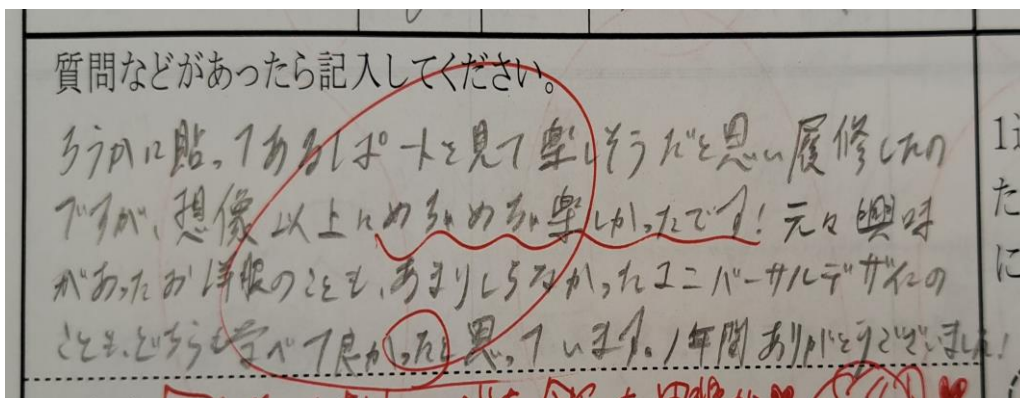 質問などがあったら記入してください。
ろうかに貼ってあるレポートを見て楽しそうだと思い履修したの
ですが、想像以上にめちゃめちゃ楽しかったです！元々興味
があったお洋服のことも、あまりしらなかったユニバーサルデザインの
ことも、どちらも学べて良かったと思っています。1年間ありがとうございました！
1
た
に